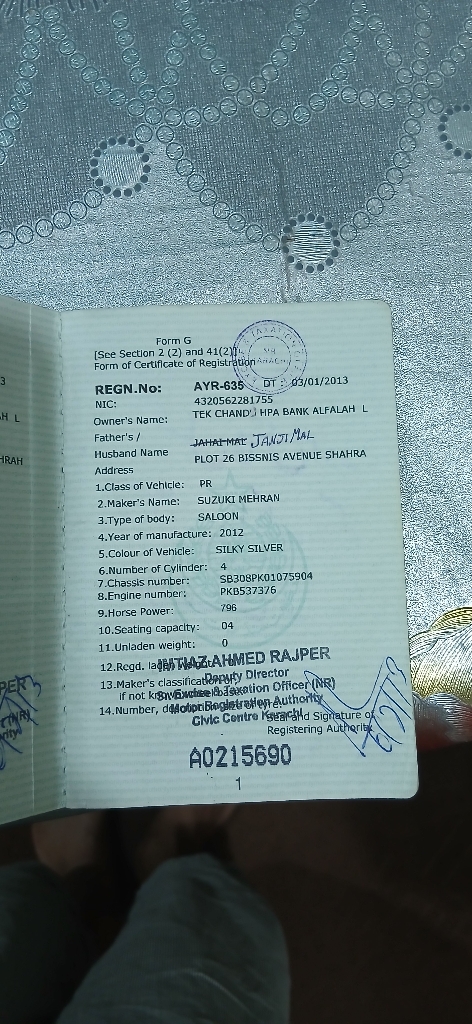 Form G
[See Section 2 (2) and 41(2)]
Form of Certificate of Registration
REGN.No: AYR-635 DT : 03/01/2013
NIC: 4320562281755
Owner's Name: TEK CHAND\ HPA BANK ALFALAH L
Father's / JAHAI MAL JANJIMAL
Husband Name
Address PLOT 26 BISSNIS AVENUE SHAHRA
1.Class of Vehicle: PR
2.Maker's Name: SUZUKI MEHRAN
3.Type of body: SALOON
4.Year of manufacture: 2012
5.Colour of Vehicle: SILKY SILVER
6.Number of Cylinder: 4
7.Chassis number: SB308PK01075904
8.Engine number: PKB537376
9.Horse Power: 796
10.Seating capacity: 04
11.Unladen weight: 0
12.Regd.
IMTIAZ AHMED RAJPER
13.Maker's classification
Deputy Director
if not
Excise & Taxation Officer (NR)
14.Number,
Motor Registration Authority
Civic Centre Karachi
and Signature of
Registering Authority
A0215690
1
3
AH L
HRAH
PER